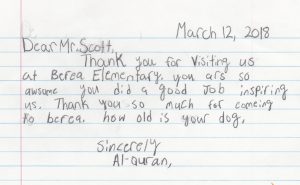 March 12, 2018
Dear Mr. Scott,
Thank you for Visiting us
at Berea Elementary. you ars so
awsome you did a good Job inspiring
us. Thank you so much for comeing
to berea. how old is your dog,
Sincerely
Al-quran,